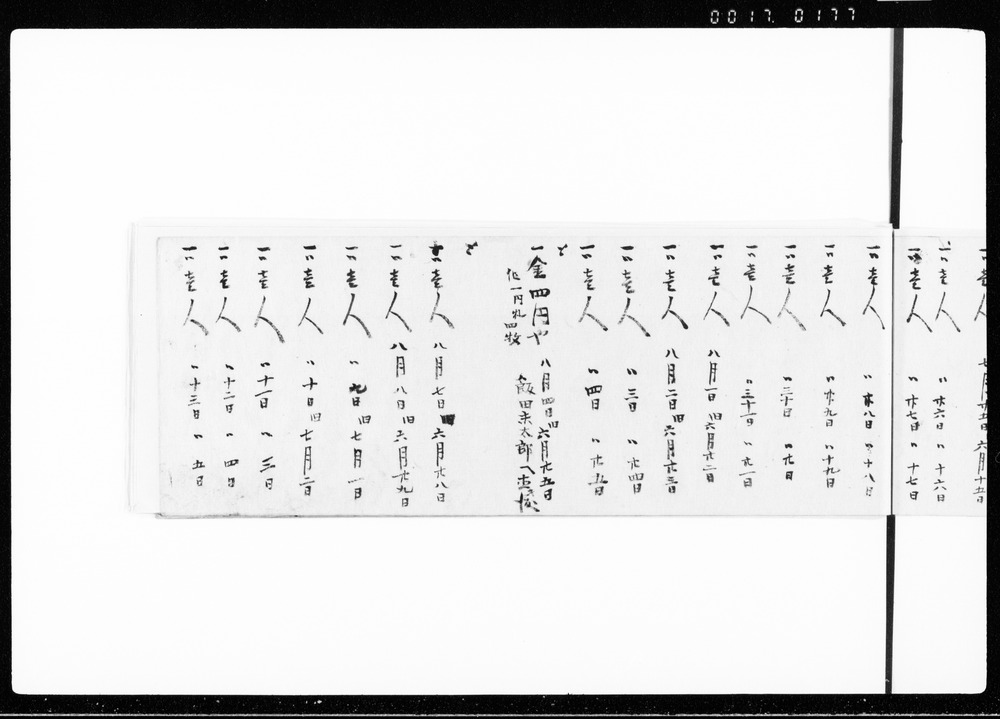 0017.0177
一〃壱人 七月廿五日 六月十五
一〃壱人 〃 廿六日 〃 十六日
一〃壱人 〃 廿七日 〃 十七日
一〃壱人 〃 廿八日 〃 十八日
一〃壱人 〃 廿九日 〃 十九日
一〃壱人 〃 三十日 〃 廿日
一〃壱人 〃 三十一日 〃 廿一日
一〃壱人 八月一日 旧六月廿二日
一〃壱人 八月二日 旧六月廿三日
一〃壱人 〃 三日 〃 廿四日
一〃壱人 〃 四日 〃 廿五日
一金四円や 八月四日 旧六月廿五日
但一円札四枚 飯田末太郎へ渡
一〃壱人 八月七日 六月廿八日
一〃壱人 八月八日 旧六月廿九日
一〃壱人 〃 九日 旧七月一日
一〃壱人 〃 十日 旧七月二日
一〃壱人 〃 十一日 〃 三日
一〃壱人 〃 十二日 〃 四日
一〃壱人 〃 十三日 〃 五日